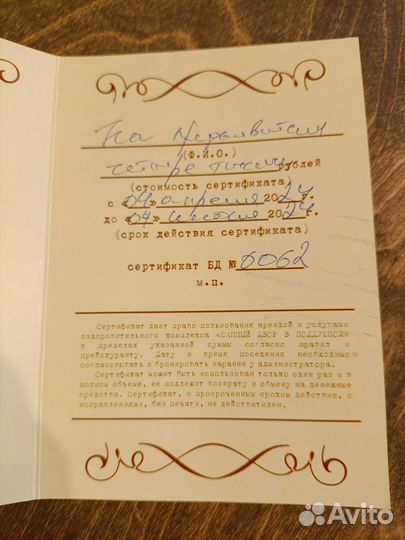 На Предъявителя
(Ф.И.О.)
четыре тысячи рублей
(стоимость сертификата)
с «04» апреля 2024 г.
до «04» 2024 г.
(срок действия сертификата)
сертификат БД № 0062
м.п.
Сертификат дает право пользования арендой и услугами
оздоровительного комплекса «БАННЫЙ ДВОР В ПОДДУБНОМ»
в пределах указанной суммы согласно правил и
прейскуранту. Дату и время посещения необходимо
согласовывать и бронировать заранее у администратора.
Сертификат может быть использован только один раз и в
полном объеме, не подлежит возврату и обмену на денежные
средства. Сертификат, с просроченным сроком действия, с
исправлениями, без печати, не действителен.
Avito